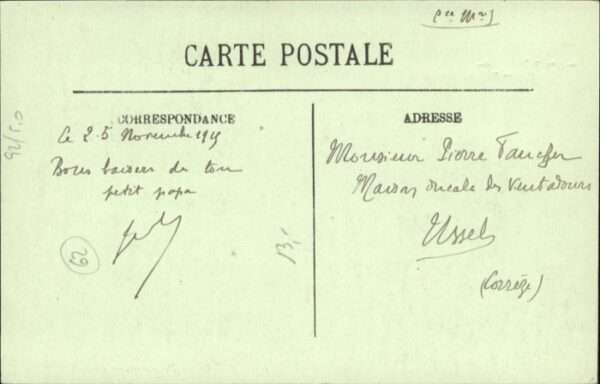 (ce Mr)
CARTE POSTALE
CORRESPONDANCE
Ce 25 Novembre 1915
Bons baisers de ton
petit papa
92/5.0
62
13,-
ADRESSE
Monsieur Pierre
Maison ducale des Ventadours
Ussel
(Corrèze)